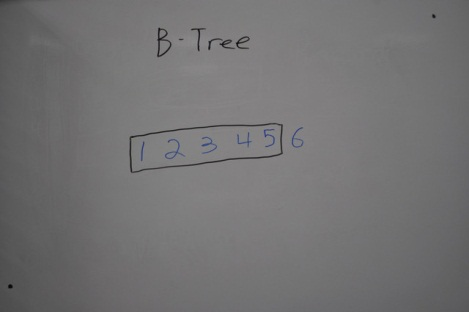 B-Tree
1 2 3 4 5 6